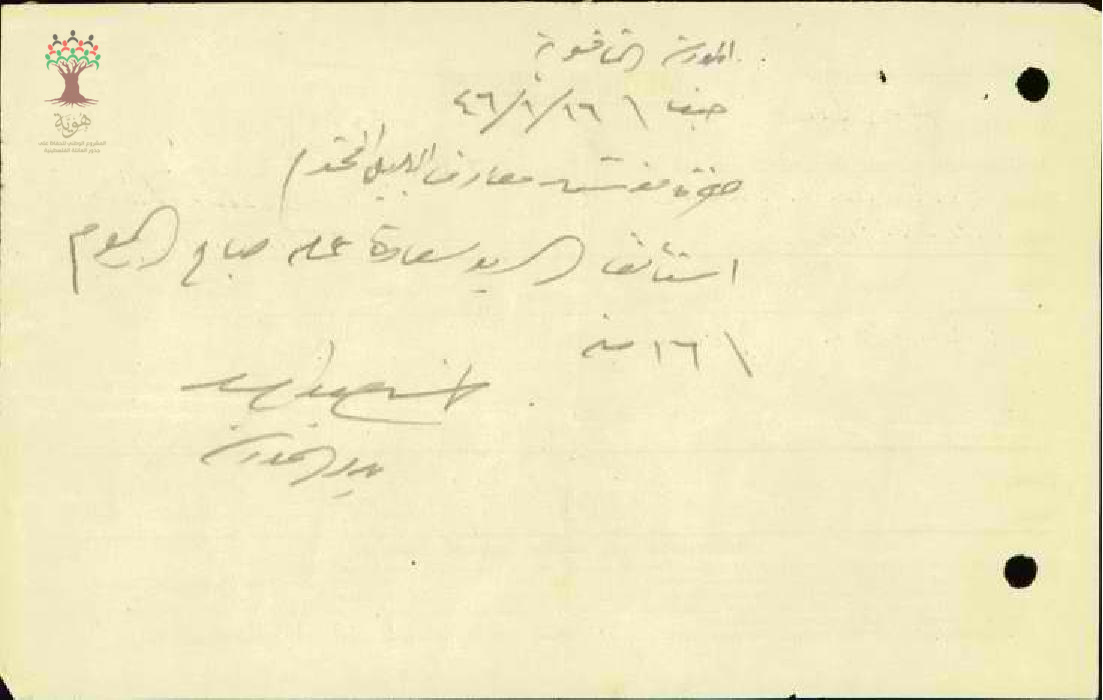 هوية
المشروع الوطني للحفاظ على
جذور العائلة الفلسطينية
المدرسة الثانوية
حيفا \ ١٦/٩/٤٦
حضرة مفتش معارف الجليل المحترم
استأنف السيد سعادة عمله صباح اليوم
\ ١٦ منه
مدير المدرسة